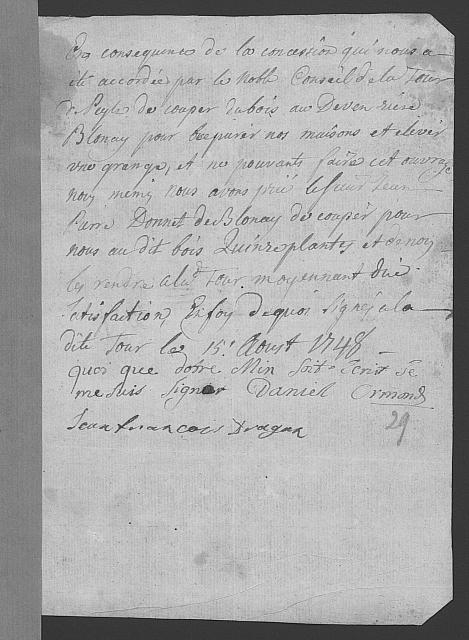 En consequence de la concession qui nous a
ete accordée par le Noble Conseil de la Tour
de Peylz de couper du bois au Deven riere
Blonay pour reparer nos maisons et elever
une grange, et ne pouvants faire cet ouvrage
nous memes Nous avons prié le Sieur Jean
Pierre Bonnet de Blonay de couper pour
nous au dit bois Quinze plantes et de nous
les rendre a la d.e Tour moyennant due
Satisfaction, En foy de quoi Signés a la
dite Tour le 15.e Aoust 1748
quoi que dotre Min soit Ecrit Je
me suis Signer Daniel Ormond
Jean francois Dragon
29